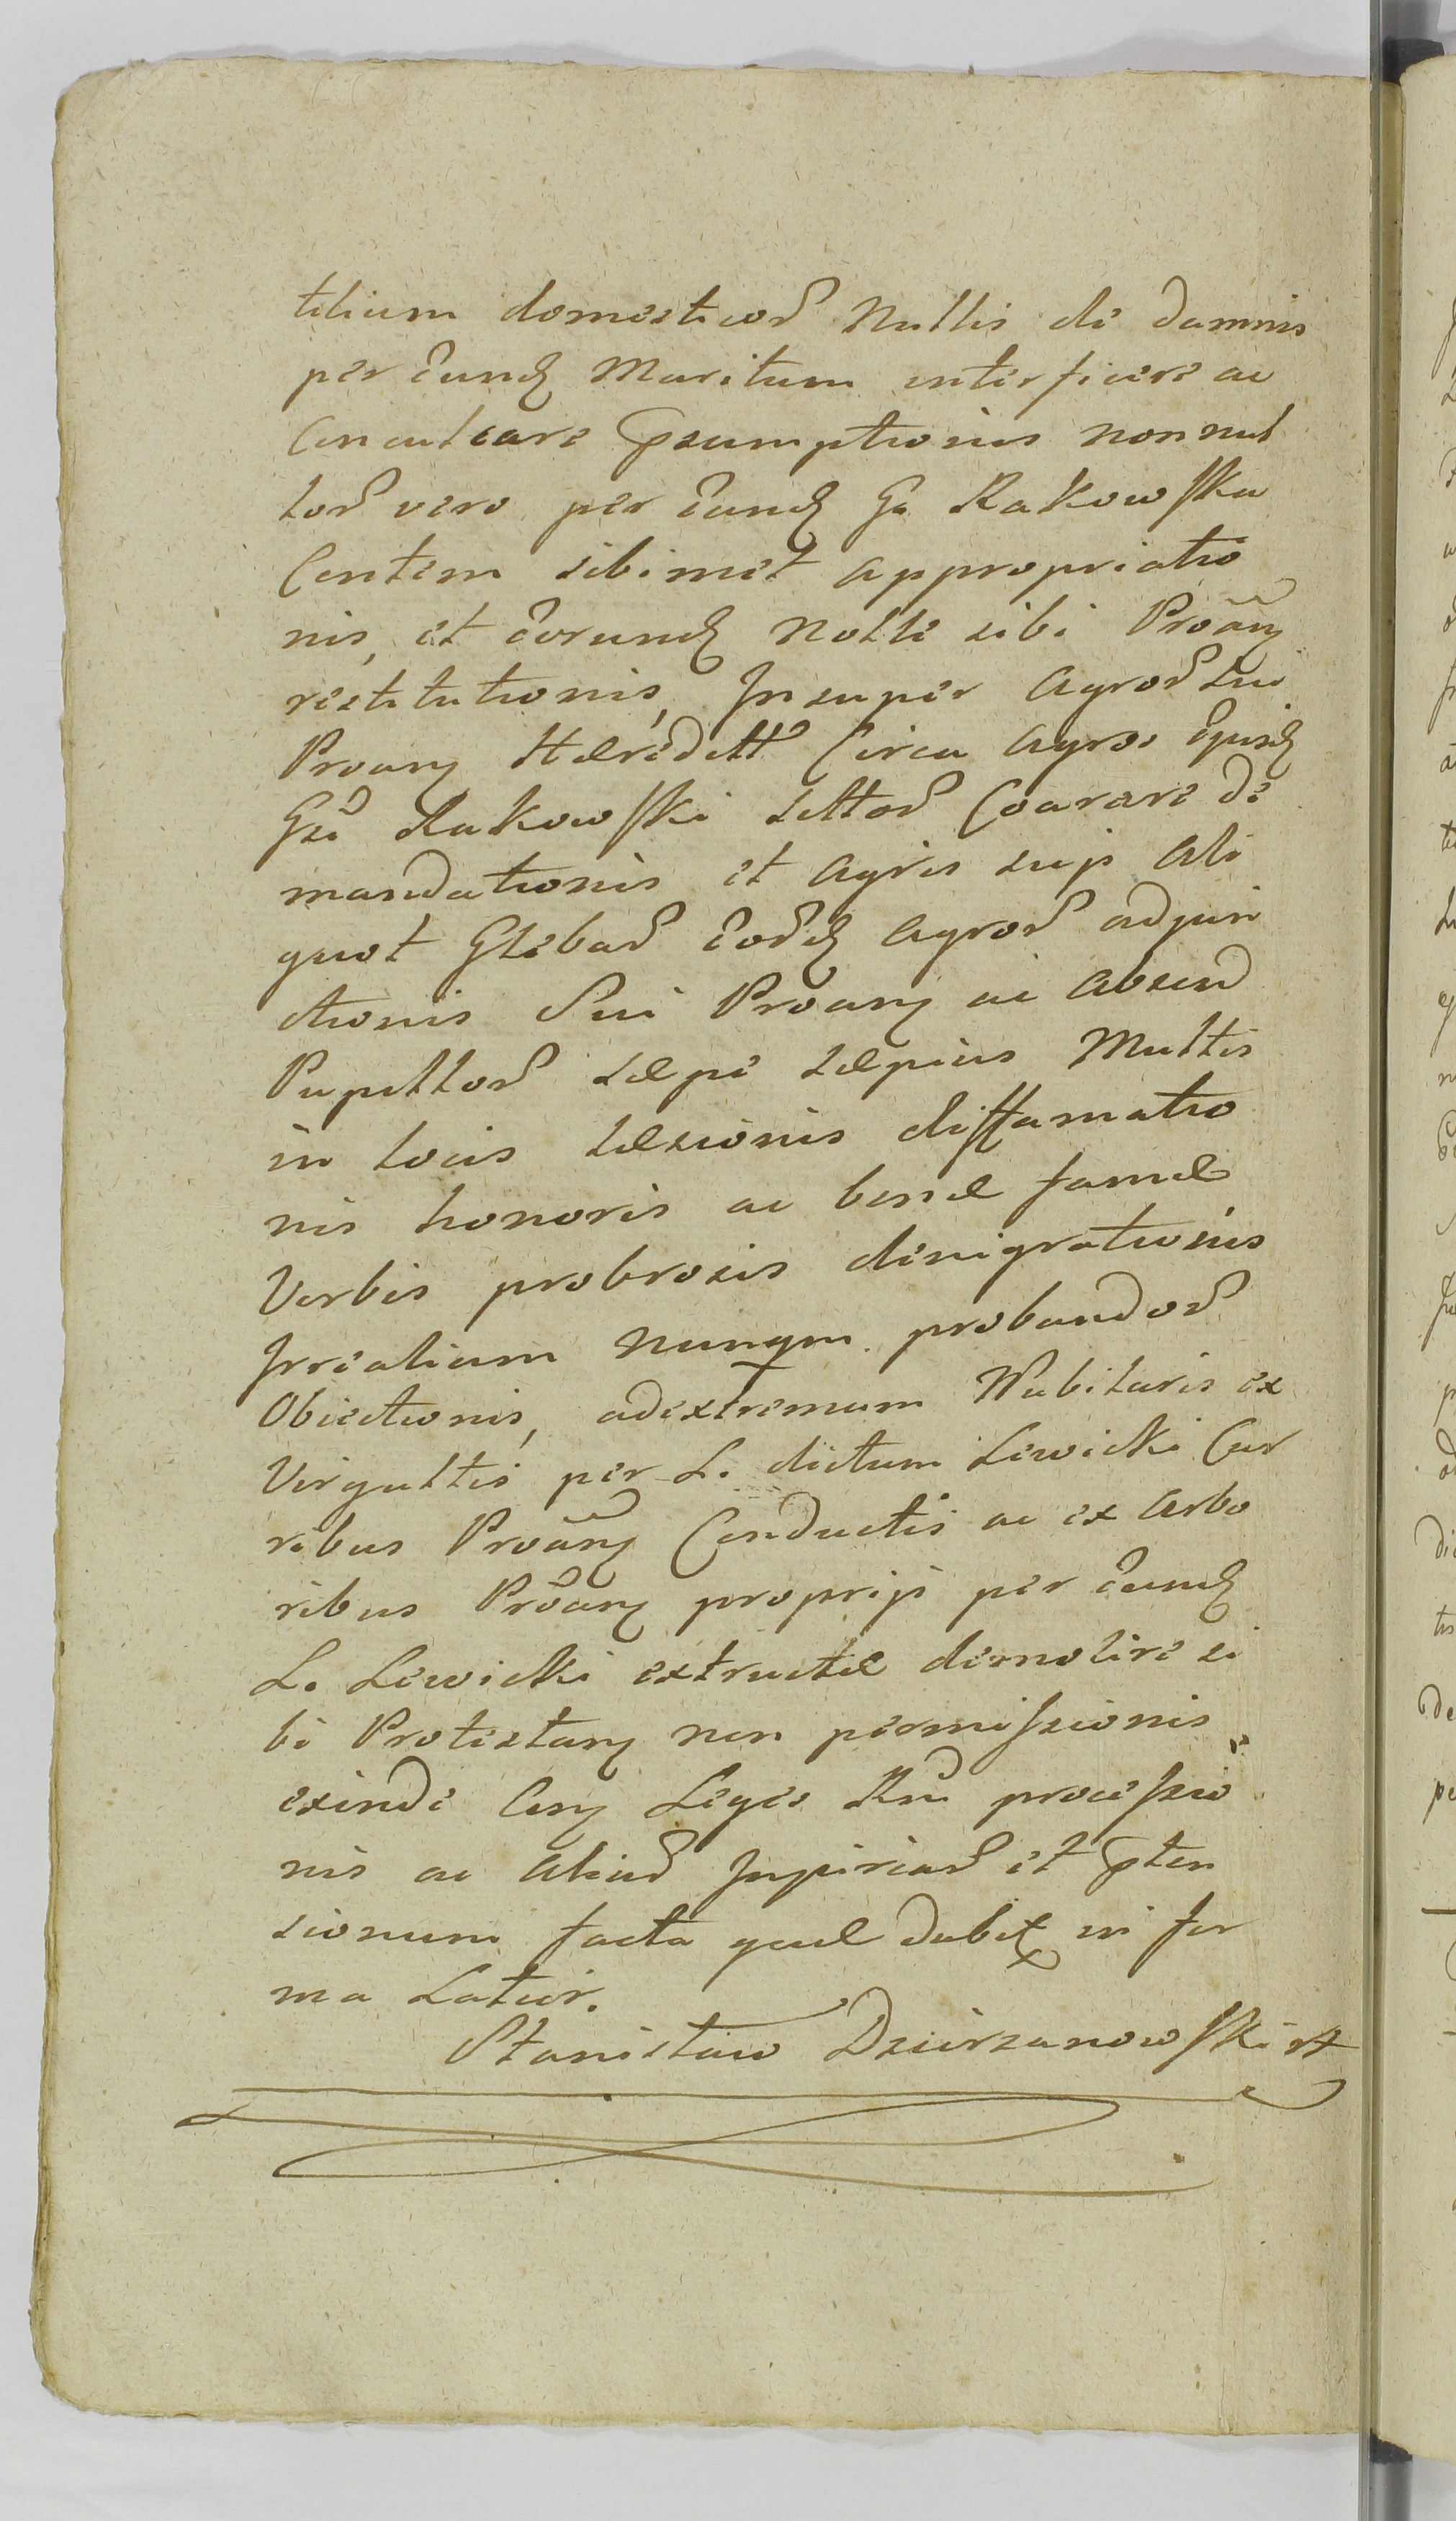 tilium domesticor Nullis de damnis
per eund Maritum interficere ac
Conculcare Psumptionis nonnul
lor vero per eand Ga Rakowska
Contem sibimet appropriatio
nis, et eorund Nolle sibi Proãn
restitutionis, Insuper Agror sui
Proan Hæreditt Circa Agros Ejusd
Gsi Rakowski sittor Coarare de
mandationis et Agris suis Ali
quot Glebar eord Agror adjun
ctionis Sui Proan ac absend
Pupillor sæpe sæpius Multis
in locis læsionis diffamatio
nis honoris ac bonæ famæ
Verbis probrosis denigrationis
Irrealium Nunqm probandor
Obiectionis, adextremum Wubitaris ex
Virgultis per L. dictum Lewicki Cur
ribus Proãn Conductis ac ex Arbo
ribus Proãn proprijs per eund
L. Lewicki extructæ demolire si
bi Protestan non permissionis
exinde Con Leges Rni processio
nis ac aliar Injuriar et Pten
sionum facta quæ dabit in for
ma Latior.
Stanisław Dzierzanowski